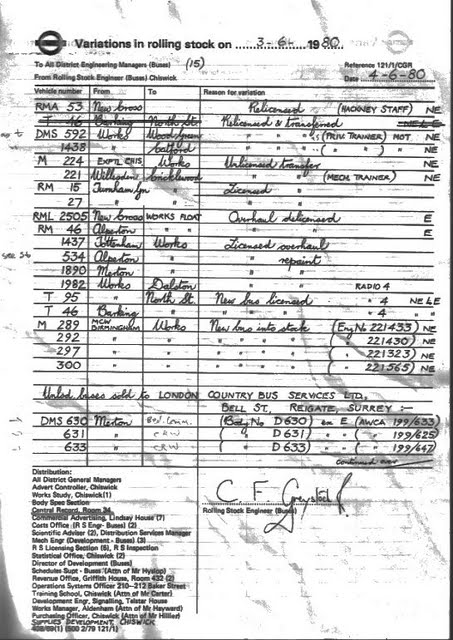 Variations in rolling stock on 3-6- 1980
To All District Engineering Managers (Buses) (15)
From Rolling Stock Engineer (Buses) Chiswick
Reference 121/1/CGR
Date 4-6-80
Vehicle number From To Reason for variation
RMA 53 New Cross Relicensed (HACKNEY STAFF) NE
T 46 Barking North St Relicensed & transferred NE LE
DMS 592 Works Wood Green " " (PRIV. TRAINER) MOT NE
1438 " Catford " " ( " " ) " NE
M 224 EXPTL CHIS Works Unlicensed transfer NE
221 Willesden Cricklewood " " (MECH TRAINER) NE
RM 15 Turnham Gn " Licensed "
27 " " " "
RML 2505 New Cross WORKS FLOAT Overhaul delicensed E
RM 46 Alperton " " " E
1437 Tottenham Works Licensed overhaul
534 Alperton " " repaint
1890 Merton " " "
1982 Works Dalston RADIO 4
T 95 " North St. New bus licensed " 4 NE LE
T 46 Barking " " " " " 4 "
M 289 MCW BIRMINGHAM Works New bus into stock (Eng No 221433) NE
292 " " " " " " ( " 221430) NE
297 " " " " " " ( " 221323) NE
300 " " " " " " ( " 221565) NE
Unlsd buses sold to LONDON COUNTRY BUS SERVICES LTD,
BELL ST, REIGATE, SURREY :-
DMS 630 Merton (Body No D630) ex E (AWCA 199/633)
631 " CRW ( " D631) " ( " 199/625)
633 " CRW ( " D633) " ( " 199/647)
continued over
Distribution:
All District General Managers
Advert Controller, Chiswick
Works Study, Chiswick(1)
Body Spec Section
Central Record, Room 34
Commercial Advertising, Lindsay House (7)
Costs Office (R S Engr- Buses) (2)
Scientific Adviser (2), Distribution Services Manager
Mech Engr (Development - Buses) (3)
R S Licensing Section (6), R S Inspection
Statistical Office, Chiswick (2)
Director of Development (Buses)
Schedules Supt - Buses (Attn of Mr Hyslop)
Revenue Office, Griffith House, Room 432 (2)
Operations Systems Officer 210-212 Baker Street
Training School, Chiswick (Attn of Mr Carter)
Development Engr, Signalling, Telstar House
Works Manager, Aldenham (Attn of Mr Hayward)
Purchasing Officer, Chiswick (Attn of Mr Hillier)
SUPPLIES DEVELOPMENT, CHISWICK
Rolling Stock Engineer (Buses)